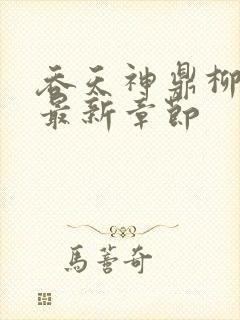 吞天神鼎柳
最新章節
馬蕾奇